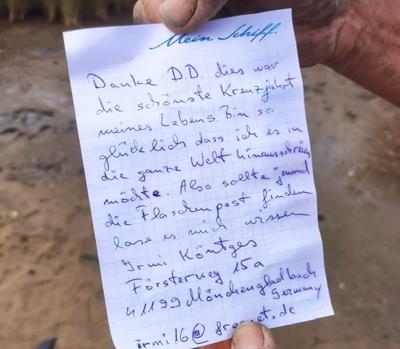 Mein Schiff.
Danke D.D. dies war
die schönste Kreuzfahrt
meines Lebens Bin so
glücklich dass ich es in
die ganze Welt hinausschreien
möchte. Also sollte jemand
die Flaschenpost finden
lass es mich wissen
Irmi Köntges
Försterweg 15a
41199 Mönchengladbach
Germany
irmi16@